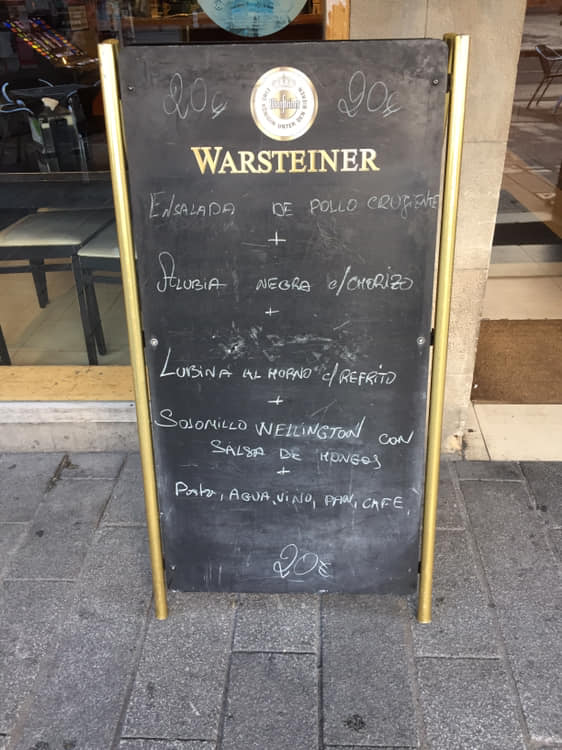 20€ 20€
Warsteiner
WARSTEINER
ENSALADA DE POLLO CRUJIENTE
+
ALUBIA NEGRA C/CHORIZO
+
LUBINA AL HORNO C/REFRITO
+
SOLOMILLO WELLINGTON CON
SALSA DE HONGOS
+
Postre, AGUA, VINO, PAN, CAFE,
20€